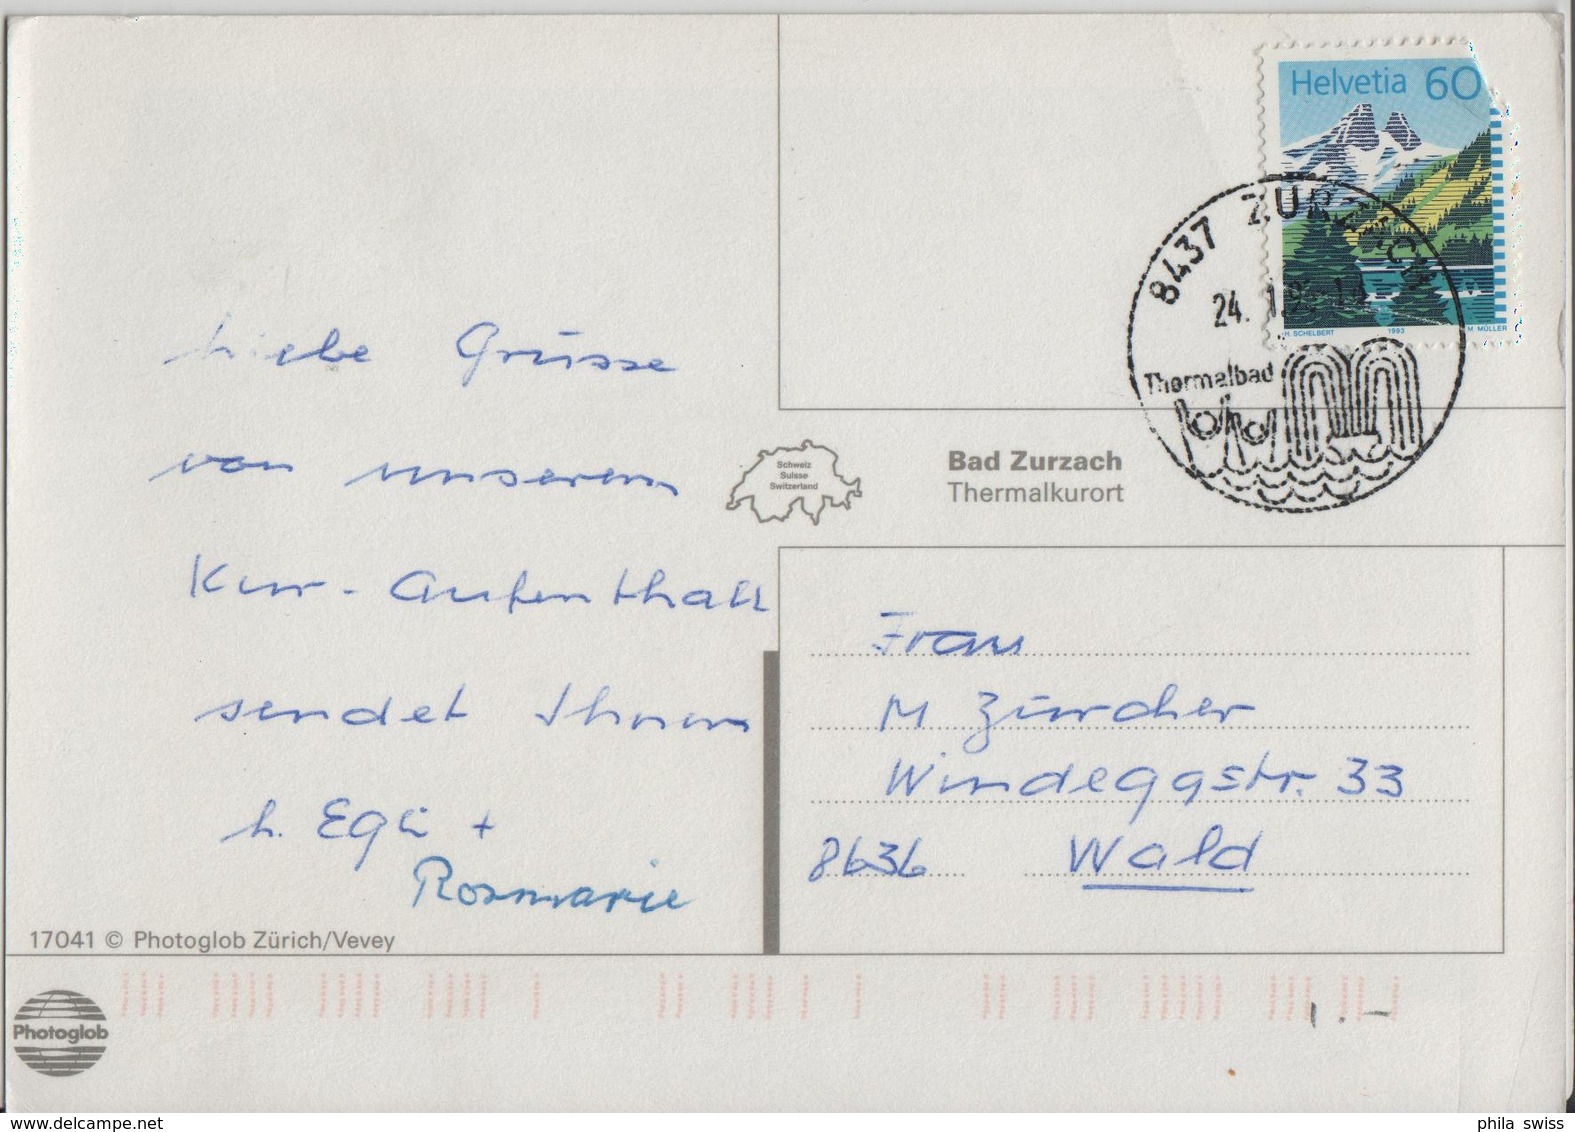 Helvetia 60
H. SCHELBERT 1993 M. MÜLLER
8437 ZURZACH
24. 1.
Thermalbad
Schweiz
Suisse
Switzerland
Bad Zurzach
Thermalkurort
Liebe Grüsse
von unserem
Kur-Aufenthalt
sendet Ihnen
h. Egli +
Rosmarie
Frau
M Zürcher
Windeggstr. 33
8636 Wald
17041 © Photoglob Zürich/Vevey
Photoglob
1.-
delcampe.net
phila_swiss